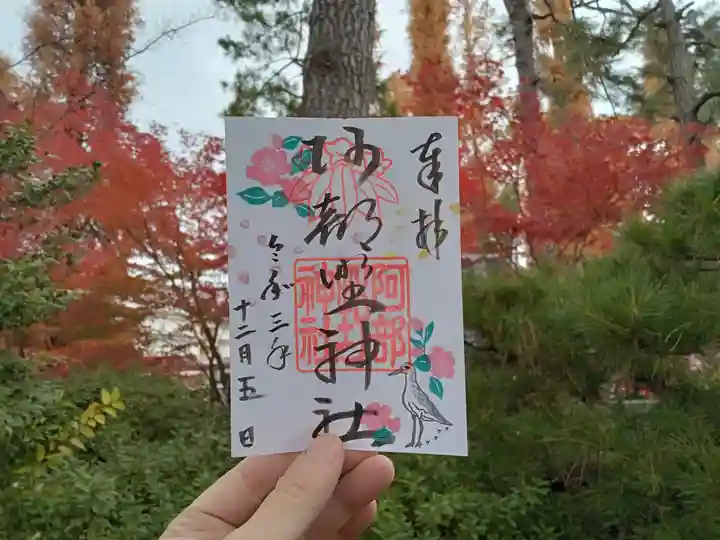 奉拝
阿部野神社
令和三年
十二月五日
阿部野神社